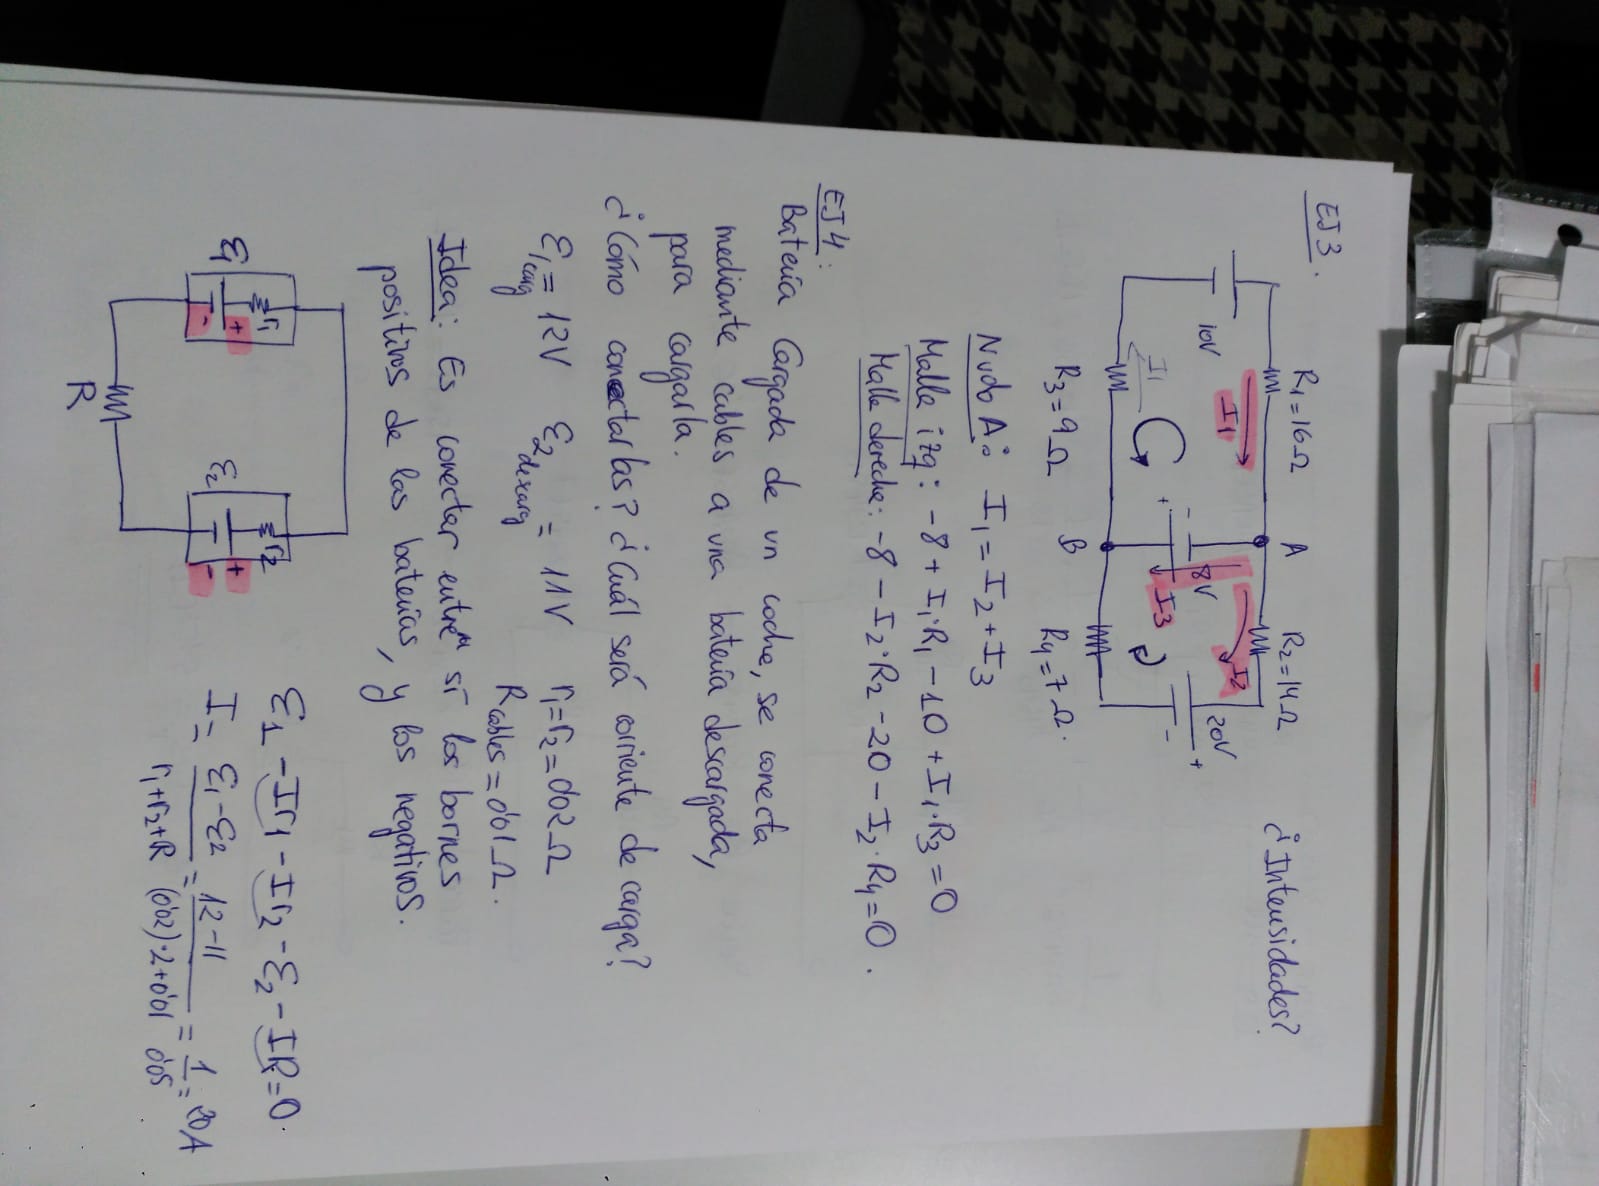 EJ3.
R1=16Ω A R2=14Ω ¿Intensidades?
I1 I2
10V 8V 20V
- +
+ I3 -
I1
R3=9Ω B R4=7Ω.
Nudo A: I1 = I2 + I3
Malla izq: -8 + I1·R1 - 10 + I1·R3 = 0
Malla derecha: -8 - I2·R2 - 20 - I2·R4 = 0.
EJ4:
Batería Cargada de un coche, se conecta
mediante cables a una batería descargada,
para cargarla.
¿Cómo conectarlas? ¿Cuál será corriente de carga?
ε1carg = 12V ε2descarg = 11V r1=r2=0'02Ω
Rcables = 0'01Ω.
Idea: Es conectar entre sí los bornes
positivos de las baterías, y los negativos.
r1 r2
ε1 + - ε2 + -
R
ε1 - Ir1 - Ir2 - ε2 - IR = 0.
I = (ε1 - ε2)/(r1+r2+R) = (12-11)/((0'02)·2+0'01) = 1/0'05 = 20A